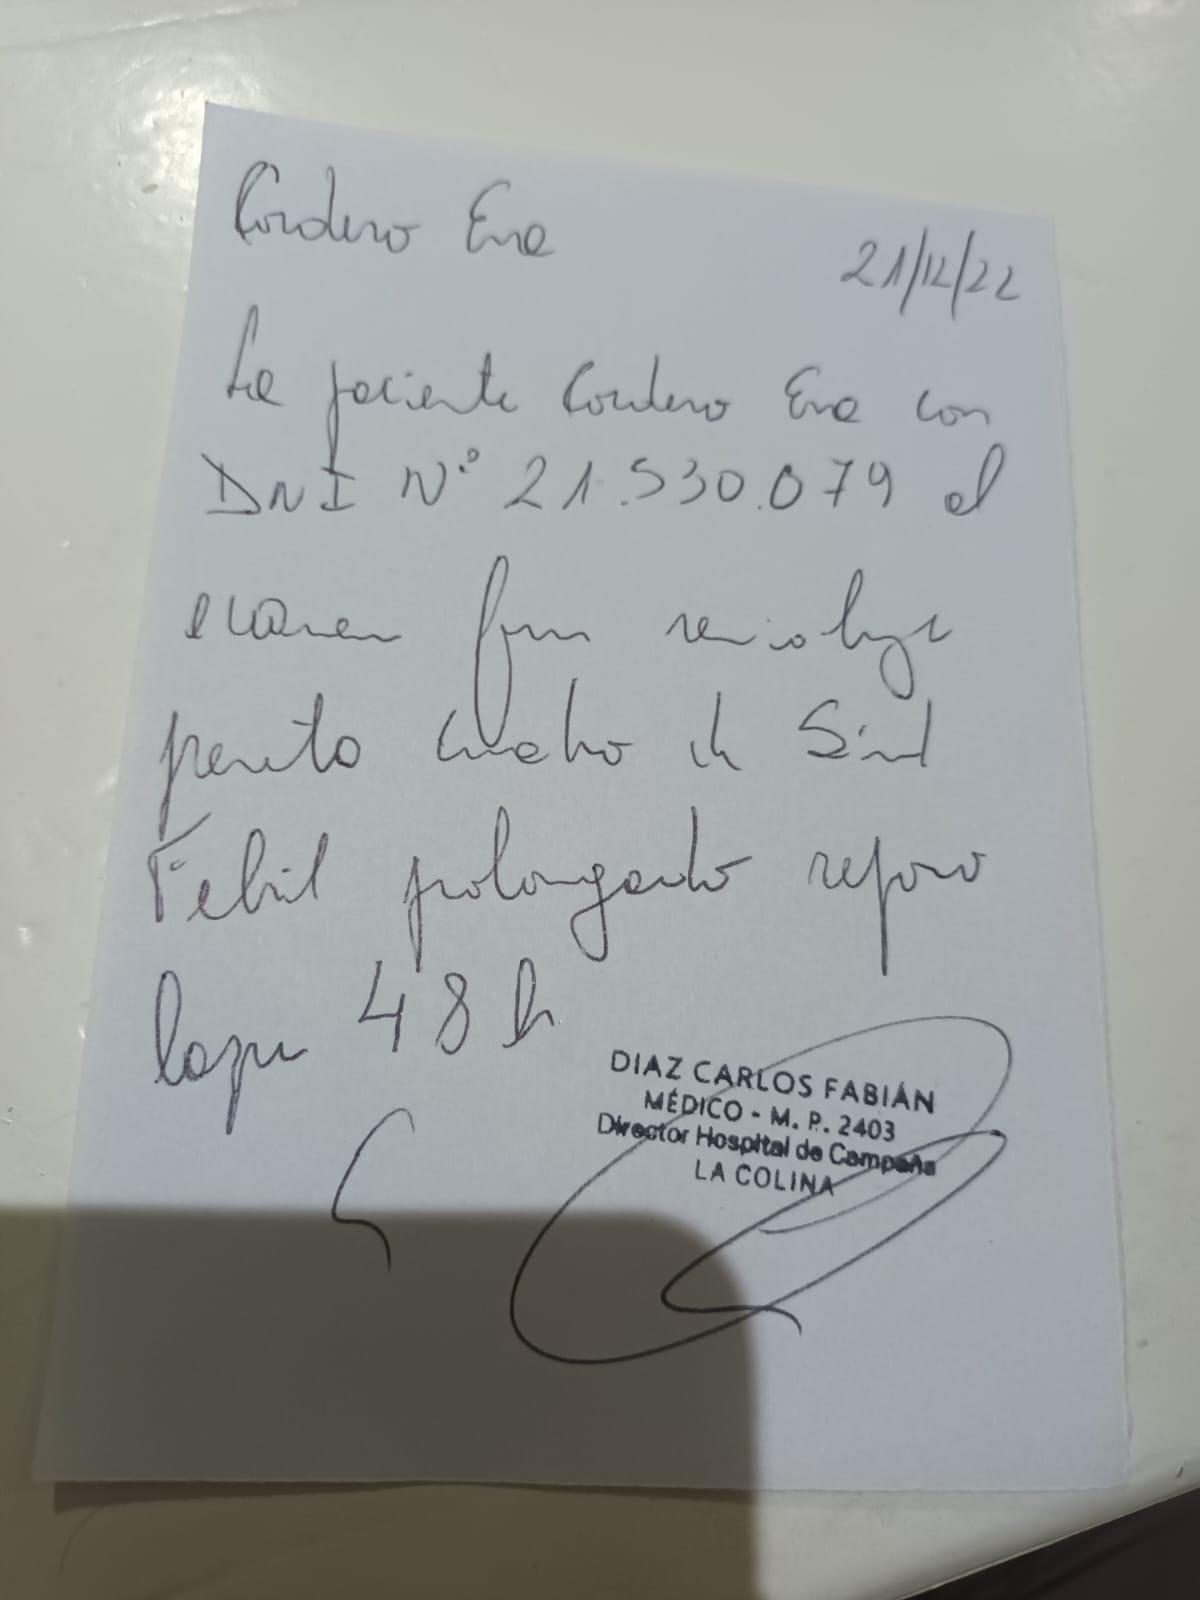 Cordero Ena
21/12/22
La paciente Cordero Ena con
DNI N° 21.530.079 al
examen fisico
cuadro de Sind
Febril prolongado reposo
48 h
DIAZ CARLOS FABIÁN
MÉDICO - M. P. 2403
Director Hospital de Campaña
LA COLINA